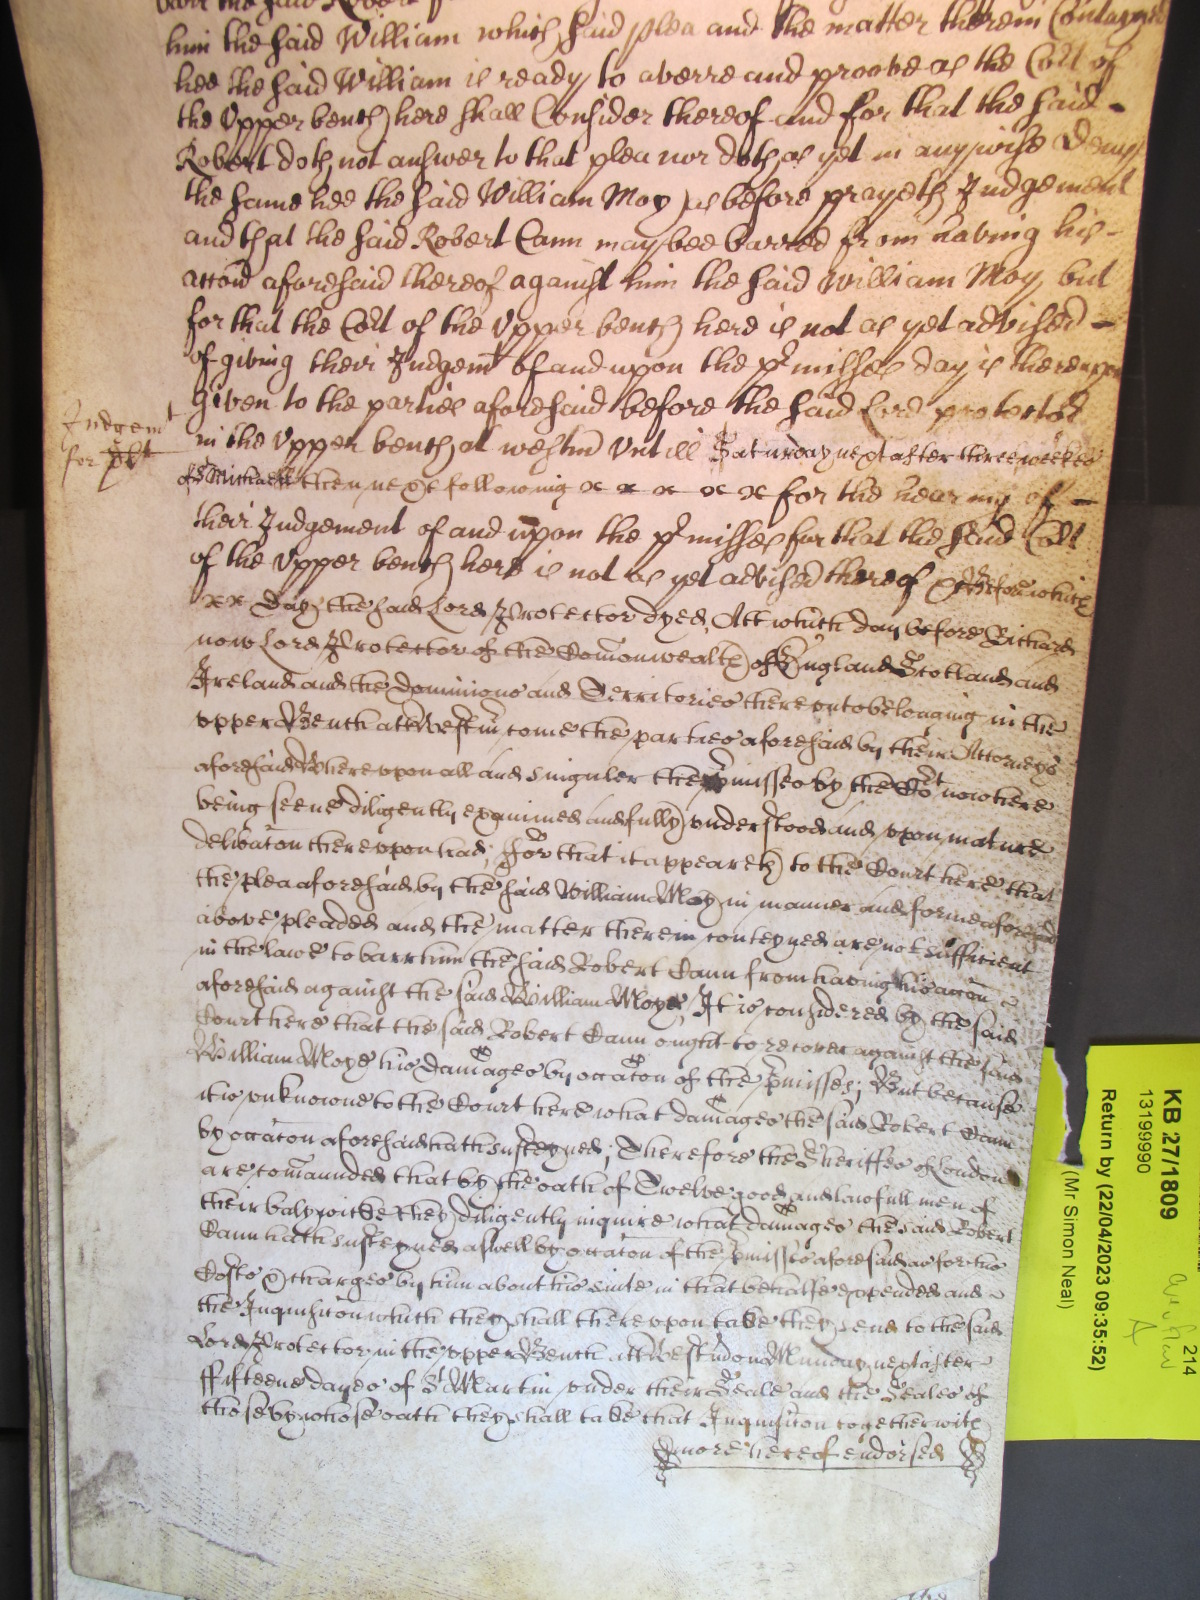 him the said William which said plea and the matter therein Contayned
hee the said William is ready to averre and proove as the Co͞rt of
the Vpper bench here shall Consider thereof and for that the said -
Robert doth not answer to that plea nor doth as yet in any wise Deny
the same hee the said William Moy as before prayeth Judgement
and that the said Robert Cann may bee barred from having his -
accon̄ aforesaid thereof against him the said William Moy, but
for that the Co͞rt of the Vpper bench here is not as yet advised -
of giving their Judgemt of and upon the p̱rmisses day is thereupon
given to the parties aforesaid before the said Lord protector
Judgemt
for plt
in the Vpper bench at westm̄ Vntill Saturday next after three weekes
of St Michaell then next following x x x x x for the hearing of -
their Judgement of and upon the p̱rmisses for that the said Co͞rt
of the Vpper bench here is not as yet advised thereof Before which
xx Day the said Lord Protector dyed, Att which day before Richard
now Lord Protector of the Com̄onwealth of England Scotland and
Ireland and the Dominions and Territories thereunto belonging in the
upper Bench att Westm̄ come the parties aforesaid by their Attorneys
aforesaid Whereupon all and singuler the p̱misses by the Cort now here
being seene diligently examined and fully understood and upon mature
delib̄ac̄on thereupon had; For that it appeareth to the Court here that
the plea aforesaid by the said William Moy in manner and forme aforesaid
above pleaded and the matter therein conteyned are not sufficient
in the lawe to barr him the said Robert Cann from having his acc̄on
aforesaid against the said William Moye, It is considered by the said
Court here that the said Robert Cann ought to recover against the said
William Moye his damages by occac̄on of the p̱misses; But because
it is unknowne to the Court here what damages the said Robert Cann
by occac̄on aforesaid hath susteyned; Therefore the Sheriffes of London
are com̄aunded that by the oath of Twelve good and lawfull men of
their balywicke they diligently inquire what damages the said Robert
Cann hath susteyned aswell by occac̄on of the p̱misses aforesaid as for his
Costs & charges by him about his suite in that behalfe expended and
the Inquisic̄on which they shall thereupon take they send to the said
Lord Protector in the upper Bench att Westm̄ on Munday next after
ffifteene dayes of St Martin under their Seale and the Seales of
those by whose oath they shall take that Inquisic̄on together with
more hereof endorsed
KB 27/1809
13199990
Return by (22/04/2023 09:35:52)
(Mr Simon Neal)
214
A